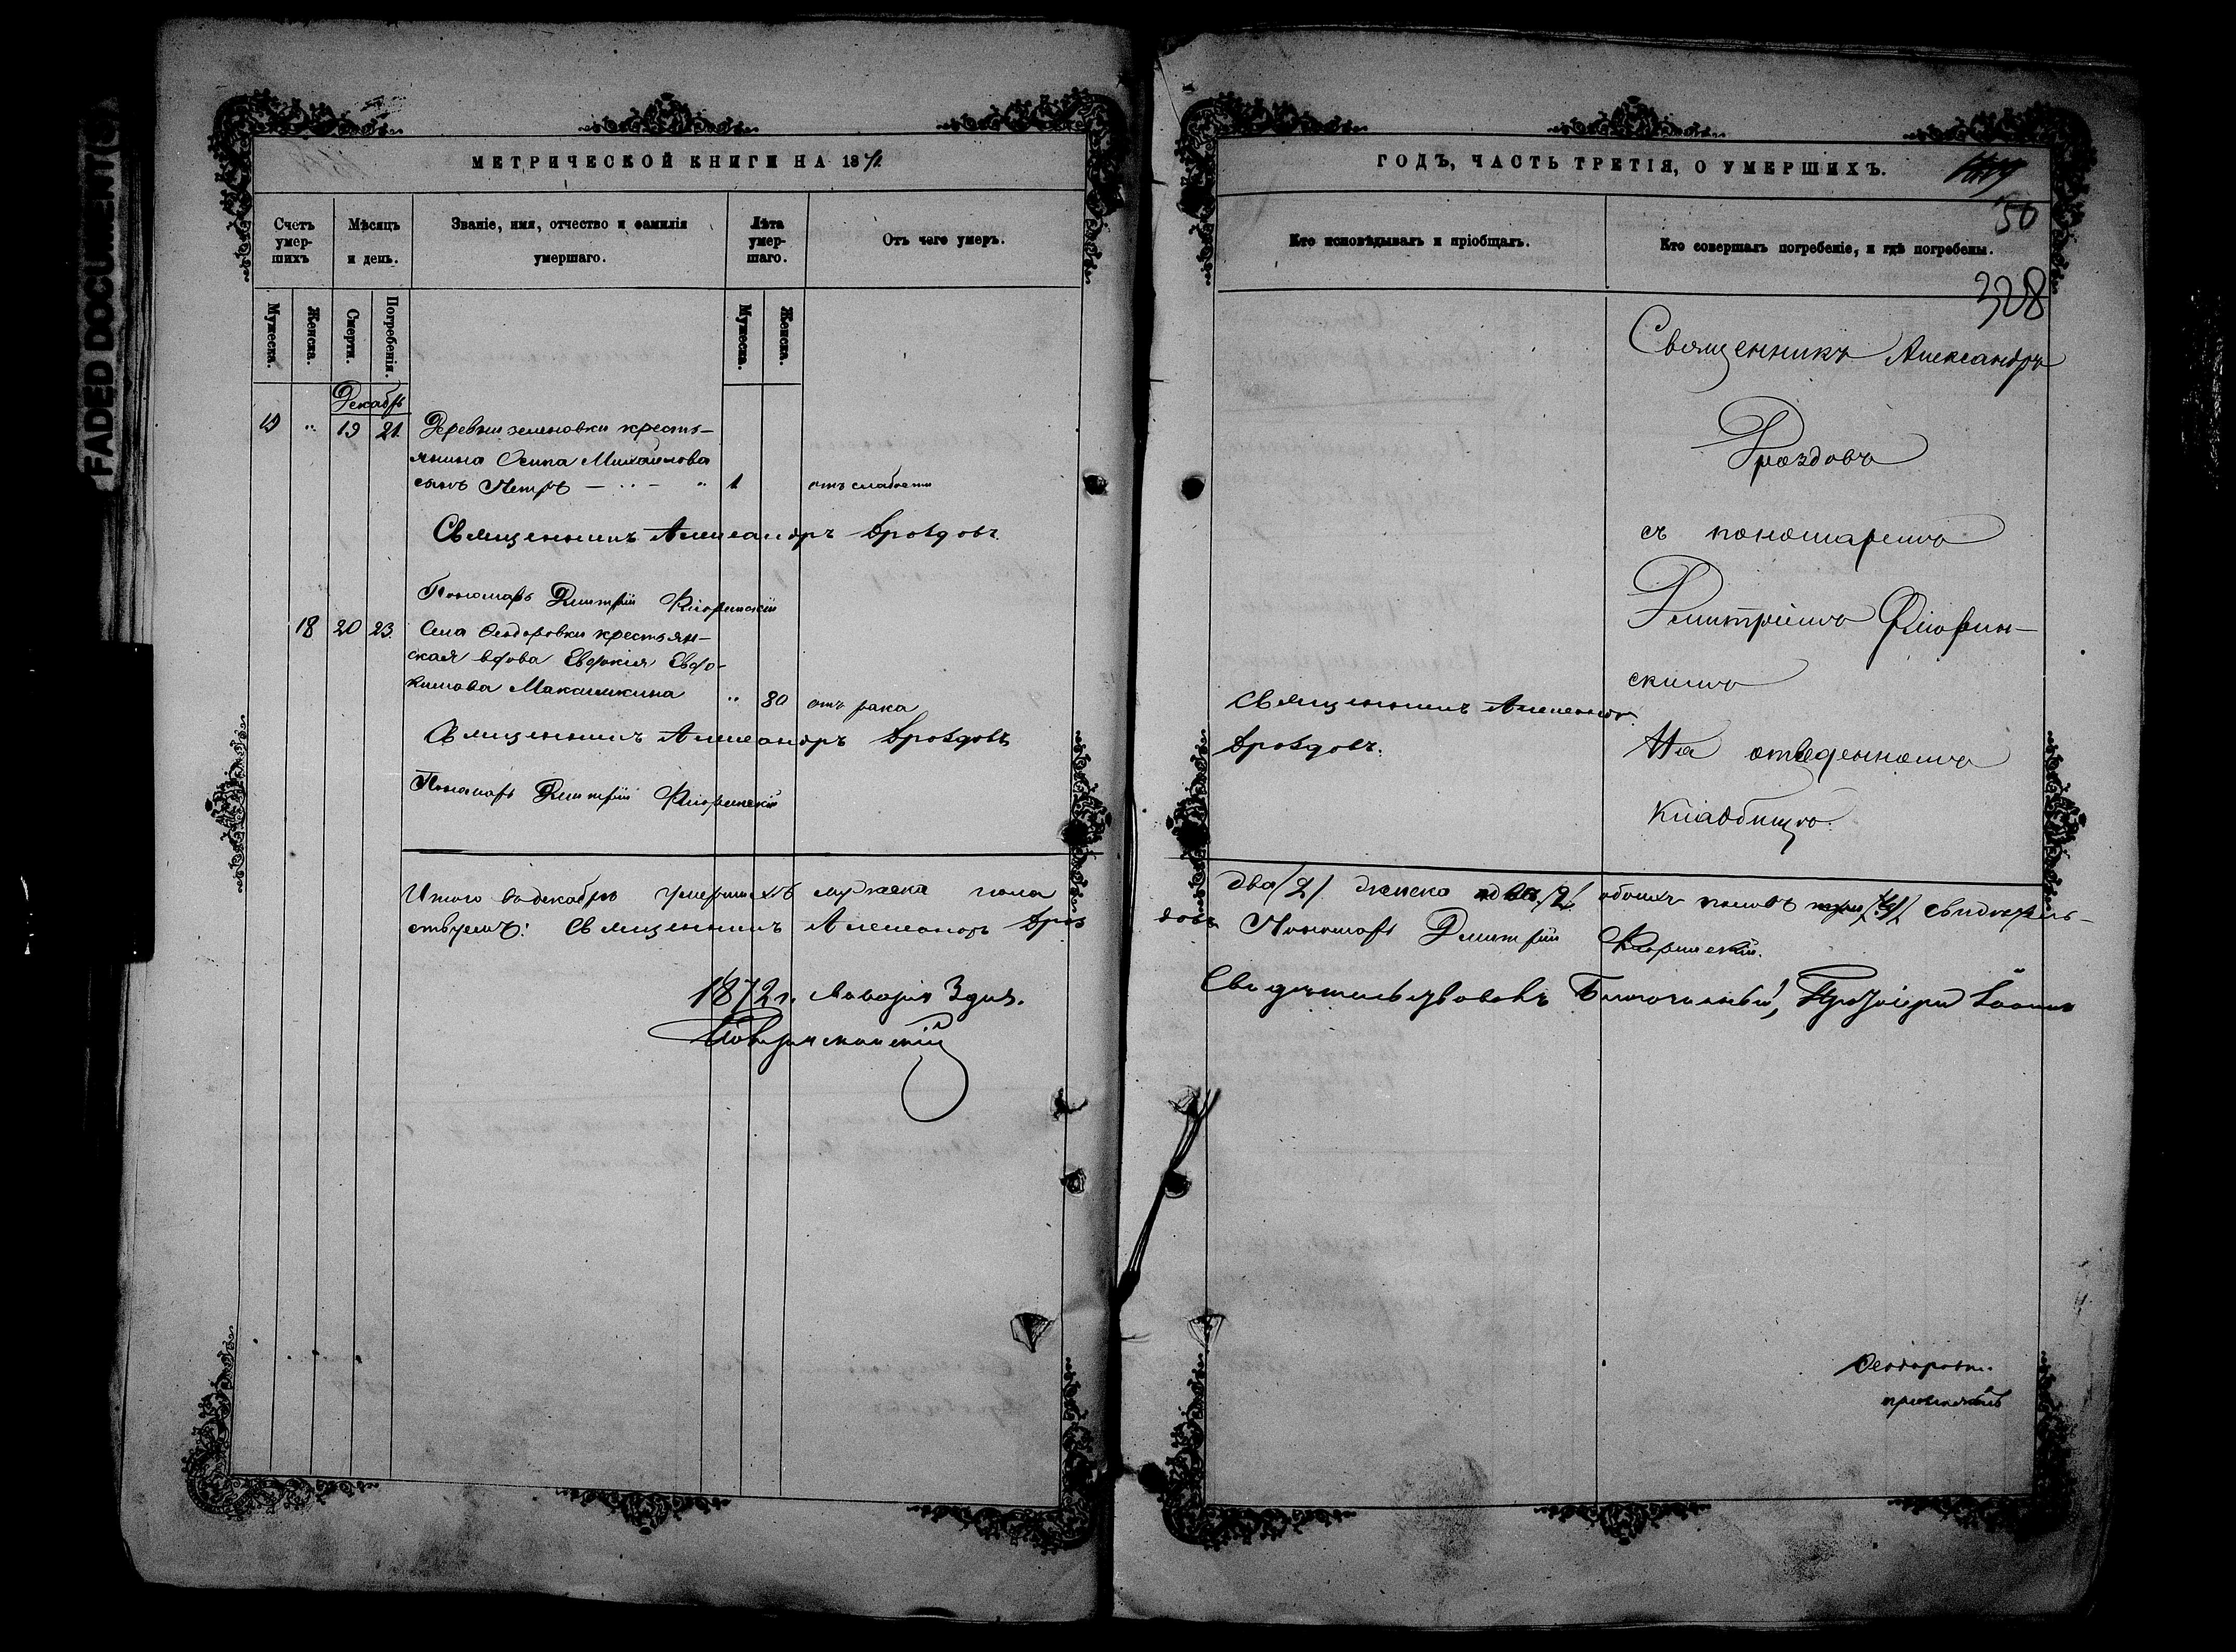 FADED DOCUMENT(S)
МЕТРИЧЕСКОЙ КНИГИ НА 1871
Счетъ умер-шихъ
Мѣсяцъ и день.
Званіе, имя, отчество и фамилія умершаго.
Лѣта умер-шаго.
Отъ чего умеръ.
Мужеска.
Женска.
Смерти.
Погребенія.
Мужеска.
Женска.
Декабрь
19 " 19 21 Деревни зеленовки кресть-
янина Осипа Михайлова
сынъ Петръ — " — " 1 отъ слабости
Священникъ Александръ Дроздовъ
Пономарь Димитрій Флоринскій
18 20 23. Села Ѳеодоровки крестьян-
ская вдова Евдокія Евдо-
кимова Максимкина " 80 отъ рака
Священникъ Александръ Дроздовъ
Пономарь Димитрій Флоринскій
Итого въ декабрѣ умершихъ мужеска пола
ствуемъ: Священникъ Александръ Дроз
1872 г. Января 3 дня.
ГОДЪ, ЧАСТЬ ТРЕТІЯ, О УМЕРШИХЪ.
50
Кто исповѣдывалъ и пріобщалъ.
Кто совершалъ погребеніе, и гдѣ погребены.
328
Священникъ Александръ
Дроздовъ
съ пономаремъ
Димитріемъ Флорин-
скимъ
Священникъ Александръ
Дроздовъ.
На отведенномъ
кладбищѣ.
два /2/ женска два /2/ обоихъ половъ /4/ свидѣтель-
довъ Пономарь Димитрій Флоринскій.
Свидѣтельствовалъ Благочинный, Протоіерей Іоаннъ